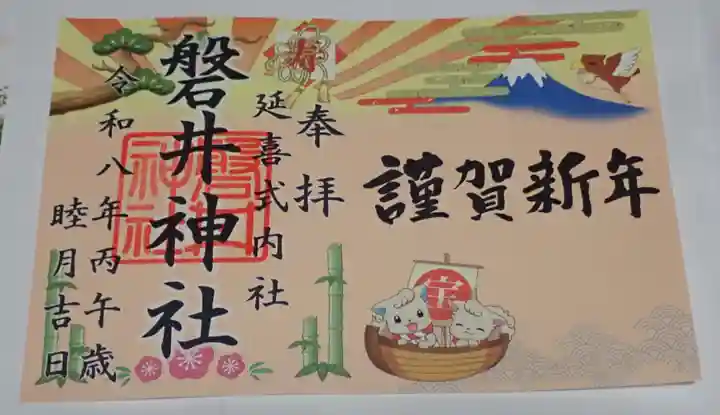 謹賀新年
寿
奉拝
延喜式内社
磐井神社
磐井神社
令和八年丙午歳
睦月吉日
宝